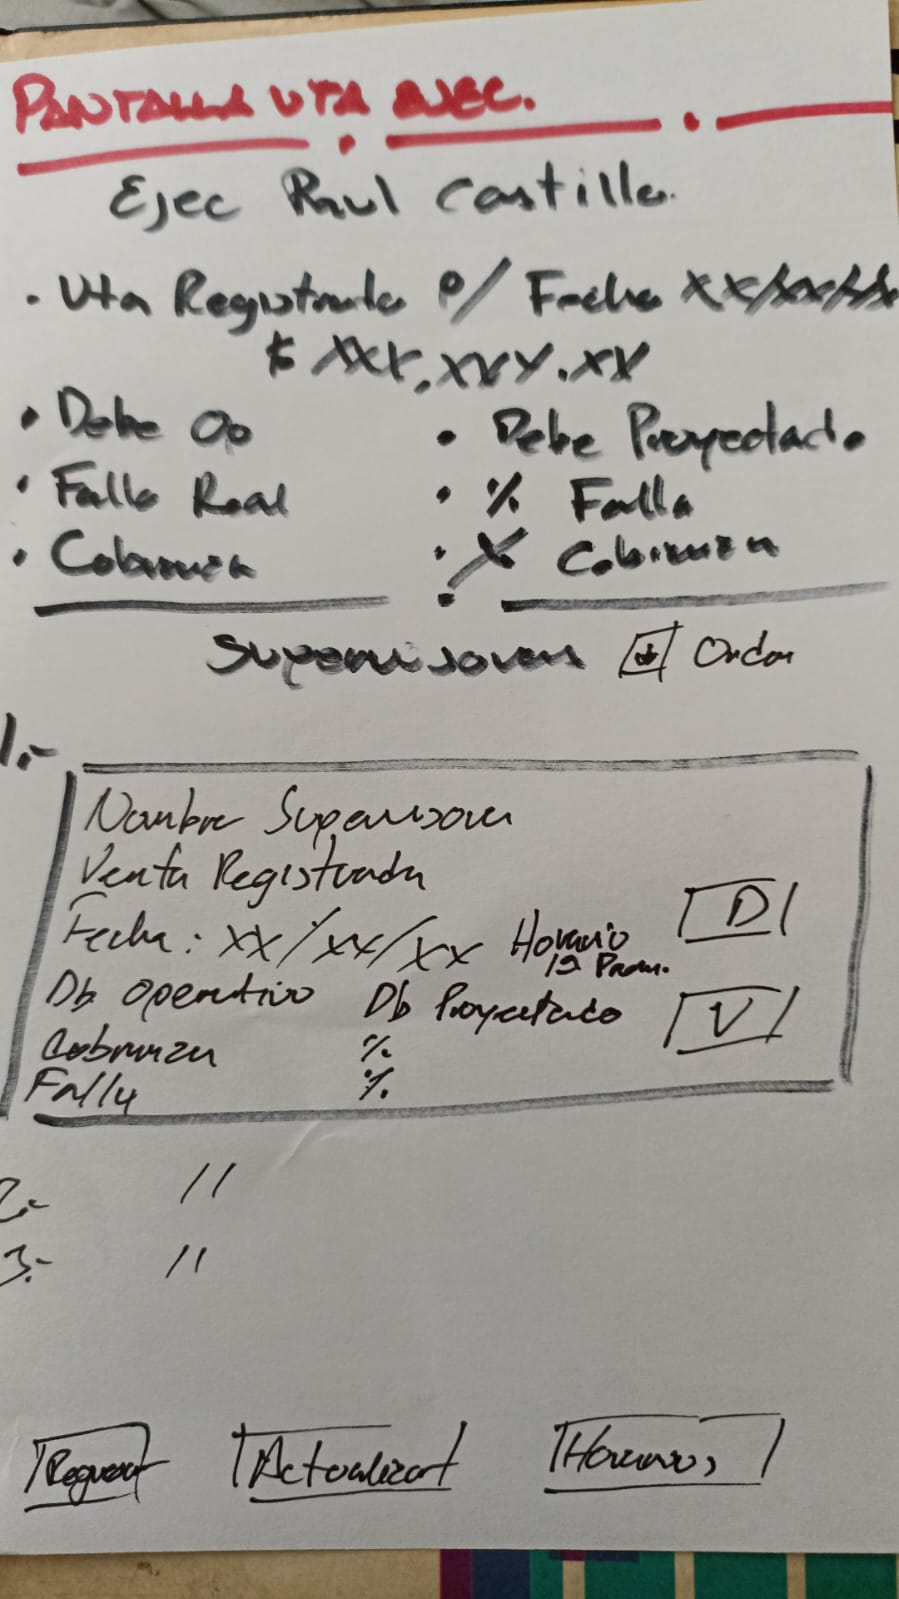 PANTALLA VTA EJEC.
Ejec Raul Castillo.
• Vta Registrada p/ Fecha xx/xx/xx
$ xxx,xxx.xx
• Debe Op • Debe Proyectado
• Falla Real • % Falla
• Cobranza • % Cobranza
Supervisores ↓ Orden
1.-
Nombre Supervisora
Venta Registrada
Fecha: xx/xx/xx Horario D
1a Prom.
Db Operativo Db Proyectado V
Cobranza %
Falla %
2.- //
3.- //
Regresar Actualizar Horarios